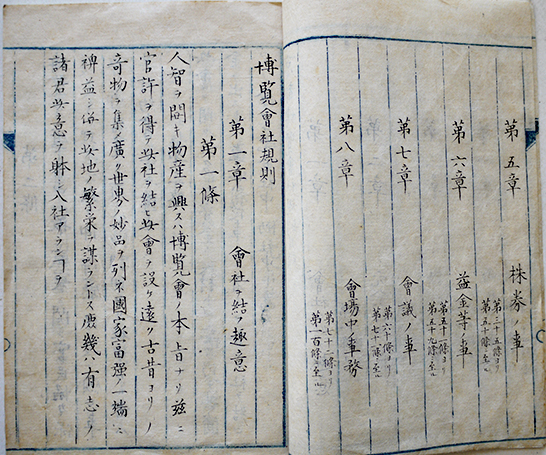 第五章 株券ノ事
第二十五條ヨリ
第五十條ニ至ル
第六章 益金等ノ事
第五十一條ヨリ
第五十九條ニ至ル
第七章 會議ノ事
第六十條ヨリ
第七十一條ニ至ル
第八章 會場中ノ事務
第七十二條ヨリ
第一百條ニ至ル
博覧會社規則
第一章 會社ヲ結ノ趣意
第一條
人智ヲ開キ物産ヲ興スハ博覧會ノ本旨ナリ茲ニ
官許ヲ得テ此社ヲ結ヒ此會ヲ設ケ遠ク古昔ヨリノ
奇物ヲ集メ廣ク世界ノ妙品ヲ列ネ國家富强ノ一端ニ
裨益シ俗テ此地ノ繁栄ヲ謀ラントス庶幾ハ有志ノ
諸君此意ヲ躰シ入社アランヿヲ